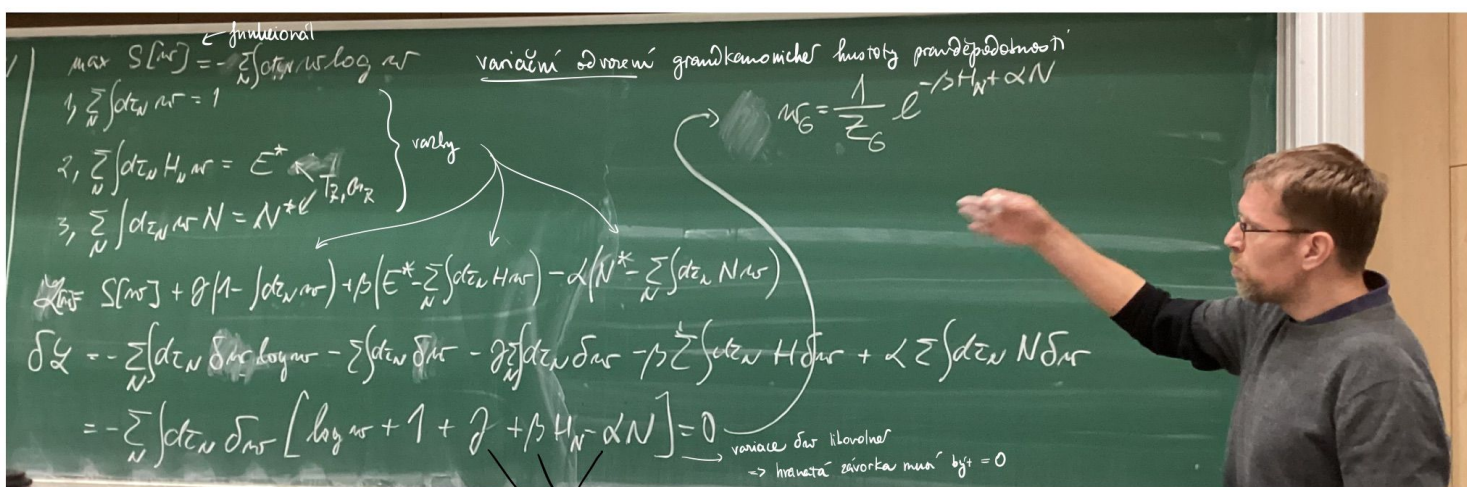 ← funkcionál
max S[w] = - ∑_N ∫dτ_N w log w
variační odvození grandkanonické hustoty pravděpodobnosti
1, ∑_N ∫dτ_N w = 1
w_G = 1/Z_G e^{-βH_N + αN}
2, ∑_N ∫dτ_N H_N w = E*
vazby
3, ∑_N ∫dτ_N w N = N*
S[w] + γ(1 - ∫dτ_N w) + β(E* - ∑_N ∫dτ_N H w) - α(N* - ∑_N ∫dτ_N N w)
δℒ = - ∑_N ∫dτ_N δw log w - ∑∫dτ_N δw - γ∑_N ∫dτ_N δw - β∑∫dτ_N H δw + α∑∫dτ_N N δw
= - ∑_N ∫dτ_N δw [log w + 1 + γ + βH_N - αN] = 0
→ variace δw libovolné
=> hranatá závorka musí být = 0